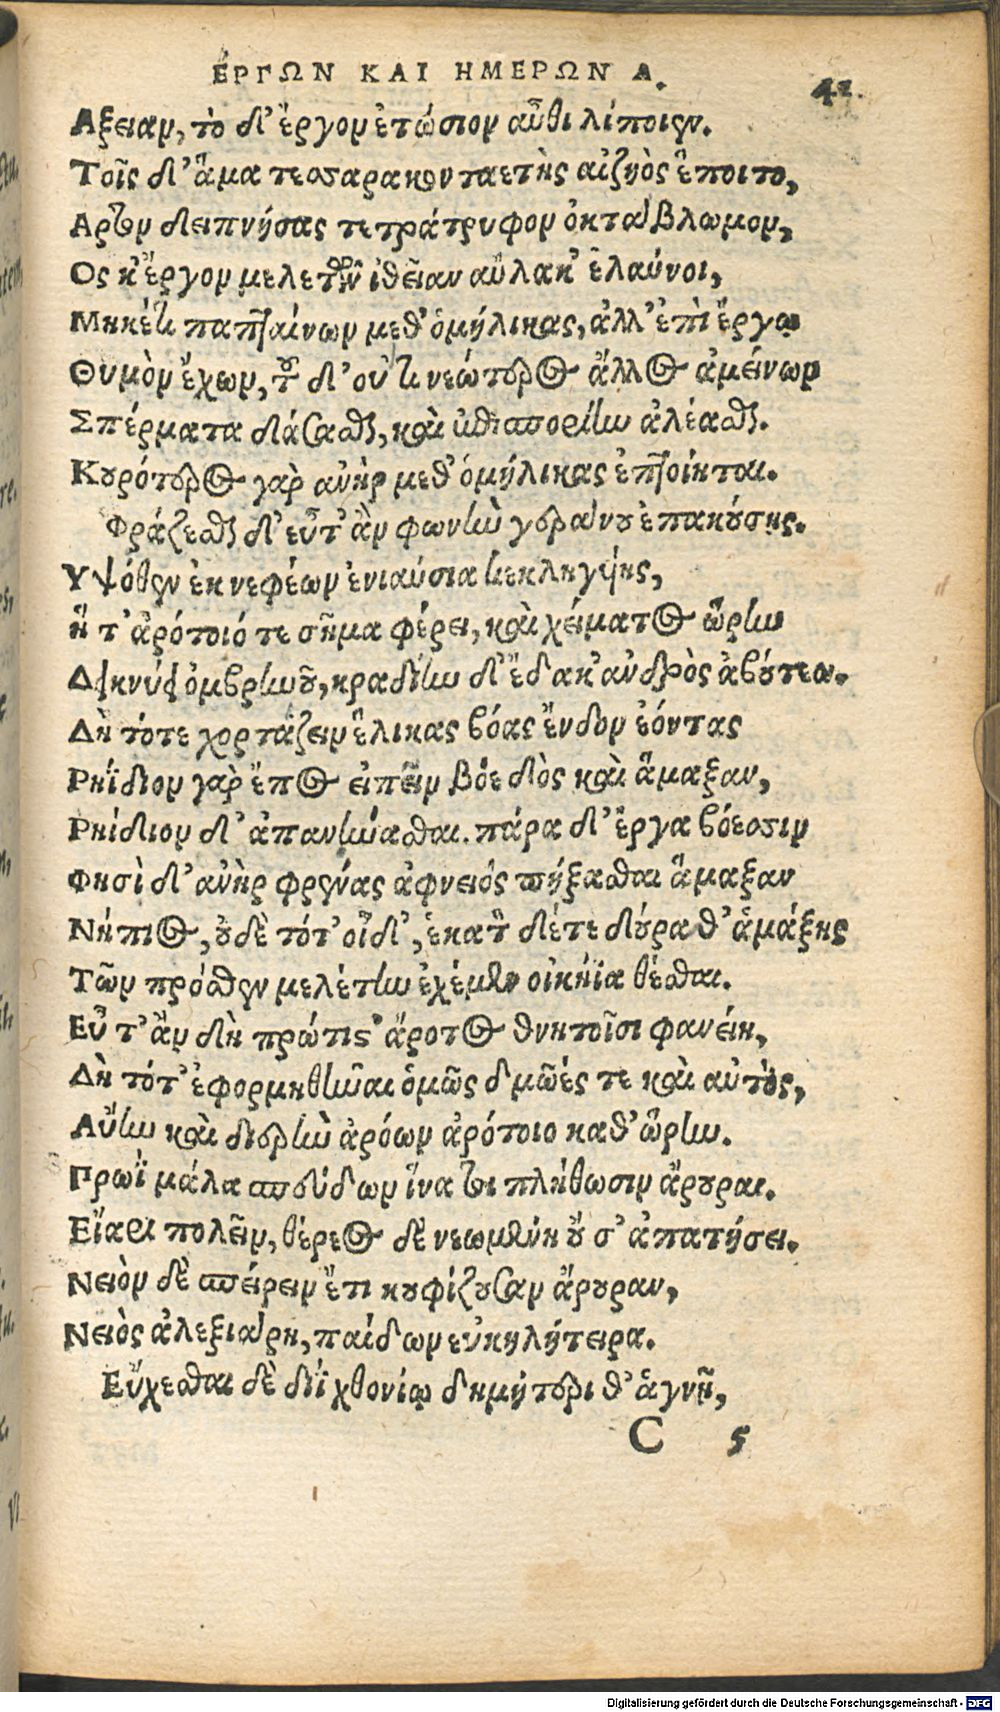 ΕΡΓΩΝ ΚΑΙ ΗΜΕΡΩΝ Α.
41.
Αξειαν, τὸ δ' ἔργον ἐτώσιον αὖθι λίποιεν.
Τοῖς δ' ἅμα τεσσαρακονταετὴς αἰζηὸς ἕποιτο,
Αρτον δειπνήσας τετράτρυφον ὀκτάβλωμον,
Ος κ' ἔργον μελετῶν ἰθεῖαν αὔλακ' ἐλαύνοι,
Μηκέτι παπταίνων μεθ' ὁμήλικας, ἀλλ' ἐπὶ ἔργῳ
Θυμὸν ἔχων, τοῦ δ' οὔτι νεώτερος ἄλλος ἀμείνων
Σπέρματα δάσασθαι, καὶ ἐπισπορίην ἀλέασθαι.
Κουρότερος γὰρ ἀνὴρ μεθ' ὁμήλικας ἐπτοίηται.
Φράζεσθαι δ' εὖτ' ἂν φωνὴν γεράνου ἐπακούσῃς.
Υψόθεν ἐκ νεφέων ἐνιαύσια κεκληγυίης,
ἥ τ' ἀρότοιό τε σῆμα φέρει, καὶ χείματος ὥρην
Δεικνύει ὀμβρηνοῦ, κραδίην δ' ἔδακ' ἀνδρὸς ἀβούτεω.
Δὴ τότε χορτάζειν ἕλικας βόας ἔνδον ἐόντας
Ρηΐδιον γὰρ ἔπος εἰπεῖν βόε δὸς καὶ ἅμαξαν,
Ρηίδιον δ' ἀπανήνασθαι. πάρα δ' ἔργα βόεσσιν
Φησὶ δ' ἀνὴρ φρένας ἀφνειός πήξασθαι ἅμαξαν
Νήπιος, οὐδὲ τότ' οἶδ', ἑκατὸν δέ τε δούρα θ' ἁμάξης
Τῶν πρόσθεν μελέτην ἐχέμεν οἰκήϊα θέσθαι.
Εὖ τ' ἂν δὴ πρώτις' ἄροτος θνητοῖσι φανείη,
Δὴ τότ' ἐφορμηθῆναι ὁμῶς δμῶές τε καὶ αὐτὸς,
Αὔην καὶ διερὴν ἀρόων ἀρότοιο καθ' ὥρην.
Πρωῒ μάλα σπεύδων ἵνα τοι πλήθωσιν ἄρουραι.
Εἴαρι πολεῖν, θέρεος δὲ νεωμένη οὔ σ' ἀπατήσει.
Νειὸν δὲ σπείρειν ἔτι κουφίζουσαν ἄρουραν,
Νειὸς ἀλεξιάρη, παίδων εὐκηλήτειρα.
Εὔχεσθαι δὲ διῒ χθονίῳ δημήτερι θ' ἁγνῇ,
C 5
Digitalisierung gefördert durch die Deutsche Forschungsgemeinschaft - DFG